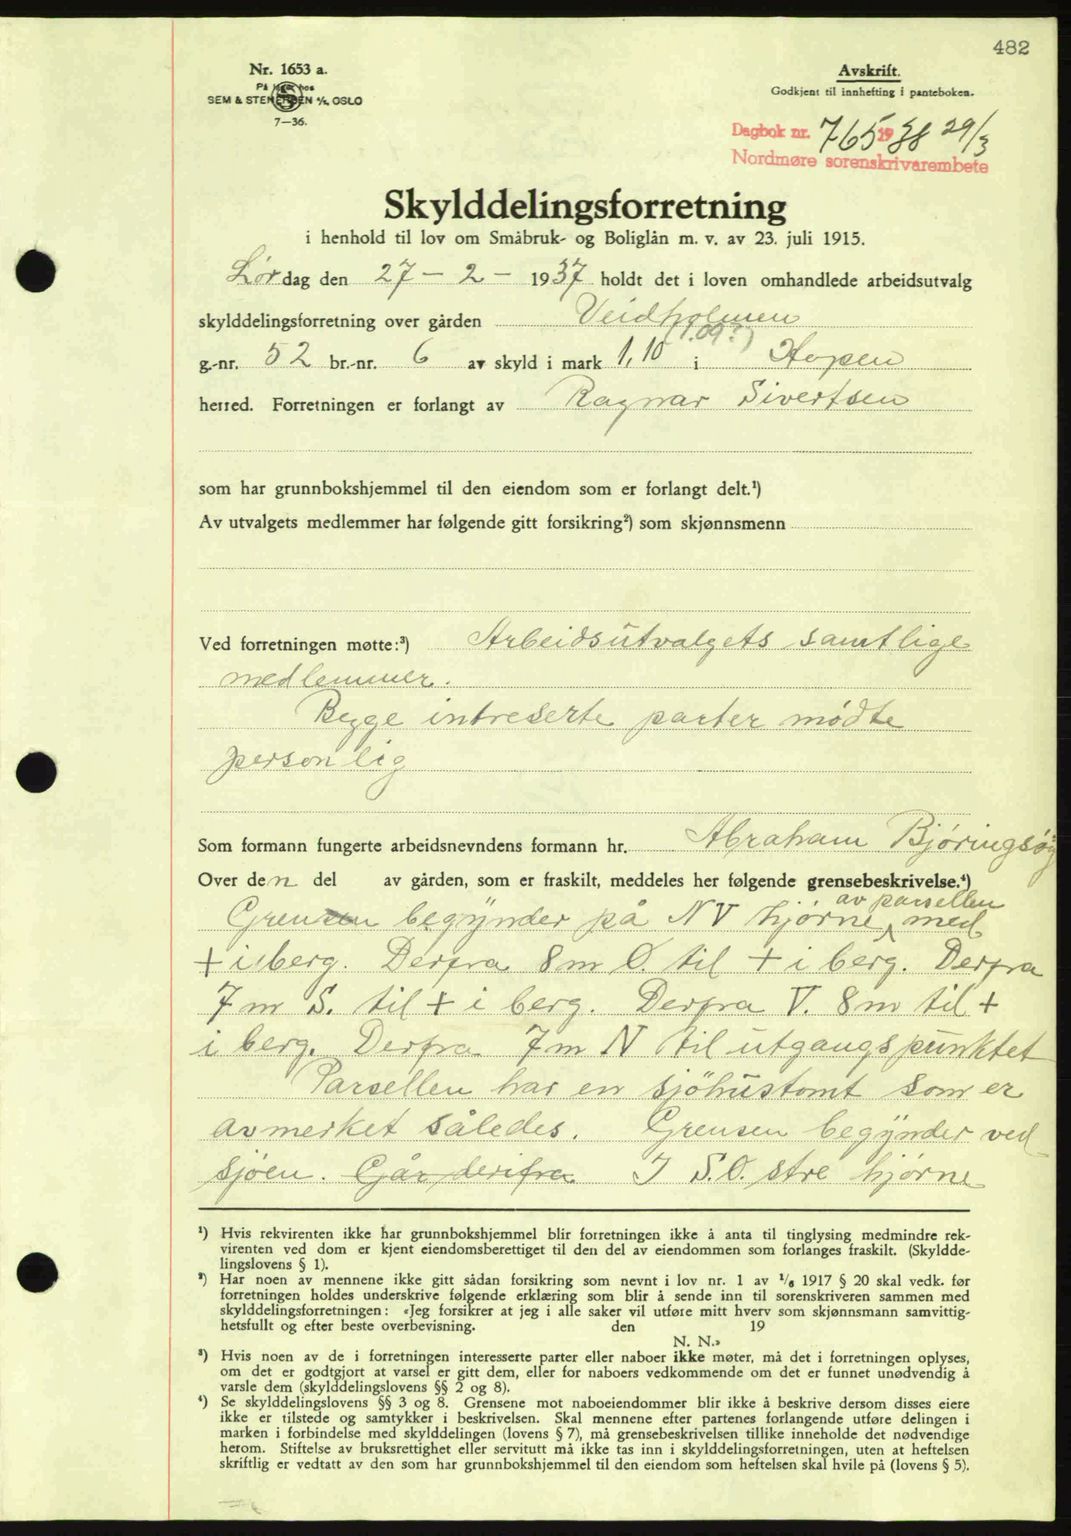 482
Nr. 1653 a.
På lager hos
SEM & STENERSEN A/S, OSLO
7—36.
Avskrift.
Godkjent til innhefting i panteboken.
Dagbok nr. 765 1938 29/3
Nordmøre sorenskrivarembete
Skylddelingsforretning
i henhold til lov om Småbruk- og Boliglån m. v. av 23. juli 1915.
Lørdag den 27 – 2 – 1937 holdt det i loven omhandlede arbeidsutvalg
skylddelingsforretning over gården Veidholmen
(1.09?)
g.-nr. 52 br.-nr. 6 av skyld i mark 1,10 i Hopen
herred. Forretningen er forlangt av Ragnar Sivertsen
som har grunnbokshjemmel til den eiendom som er forlangt delt.¹)
Av utvalgets medlemmer har følgende gitt forsikring²) som skjønnsmenn
Ved forretningen møtte:³) Arbeidsutvalgets samtlige
medlemmer.
Begge intreserte parter mødte
personlig
Som formann fungerte arbeidsnevndens formann hr. Abraham Bjøringsøy
Over den del av gården, som er fraskilt, meddeles her følgende grensebeskrivelse.⁴)
av parsellen
Grensen begynder på NV hjørne, med
+ i berg. Derfra 8 m Ø. til + i berg. Derfra
7 m S. til + i berg. Derfra V. 8 m til +
i berg. Derfra 7 m N til utgangspunktet
Parsellen har en sjöhustomt som er
avmerket således. Grensen begynder ved
sjøen. Går derifra I S.Ø. stre hjørne
¹) Hvis rekvirenten ikke har grunnbokshjemmel blir forretningen ikke å anta til tinglysing medmindre rek-
virenten ved dom er kjent eiendomsberettiget til den del av eiendommen som forlanges fraskilt. (Skyldde-
lingslovens § 1).
²) Har noen av mennene ikke gitt sådan forsikring som nevnt i lov nr. 1 av 1/6 1917 § 20 skal vedk. før
forretningen holdes underskrive følgende erklæring som blir å sende inn til sorenskriveren sammen med
skylddelingsforretningen: «Jeg forsikrer at jeg i alle saker vil utføre mitt hverv som skjønnsmann samvittig-
hetsfullt og efter beste overbevisning. den 19
N. N.»
³) Hvis noen av de i forretningen interesserte parter eller naboer ikke møter, må det i forretningen oplyses,
om det er godtgjort at varsel er gitt dem, eller for naboers vedkommende om det er funnet unødvendig å
varsle dem (skylddelingslovens §§ 2 og 8).
⁴) Se skylddelingslovens §§ 3 og 8. Grensene mot naboeiendommer blir ikke å beskrive dersom disses eiere
ikke er tilstede og samtykker i beskrivelsen. Skal mennene efter partenes forlangende utføre delingen i
marken i forbindelse med skylddelingen (lovens § 7), må grensebeskrivelsen tillike inneholde det nødvendige
herom. Stiftelse av bruksrettighet eller servitutt må ikke tas inn i skylddelingsforretningen, uten at heftelsen
skriftlig er vedtatt av den som har grunnbokshjemmel til den eiendom som heftelsen skal hvile på (lovens § 5).